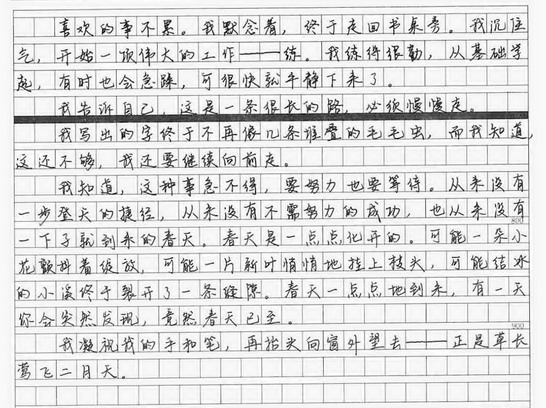 喜欢的事不累。我默念着，终于走回书桌旁。我沉住
气，开始一项伟大的工作——练。我练得很勤，从基础学
起，有时也会急躁，可很快就平静下来了。
我告诉自己，这是一条很长的路，必须慢慢走。
我写出的字终于不再像几条堆叠的毛毛虫，而我知道，
这还不够，我还要继续向前走。
我知道，这种事急不得，要努力也要等待。从来没有
一步登天的捷径，从来没有不需努力的成功，也从来没有
800
一下子就到来的春天。春天是一点点化开的。可能一朵小
花颤抖着绽放，可能一片新叶悄悄地挂上枝头，可能结冰
的小溪终于裂开了一条缝隙。春天一点点地到来，有一天
你会突然发现，竟然春天已至。
900
我凝视我的手和笔，再抬头向窗外望去——正是草长
莺飞二月天。